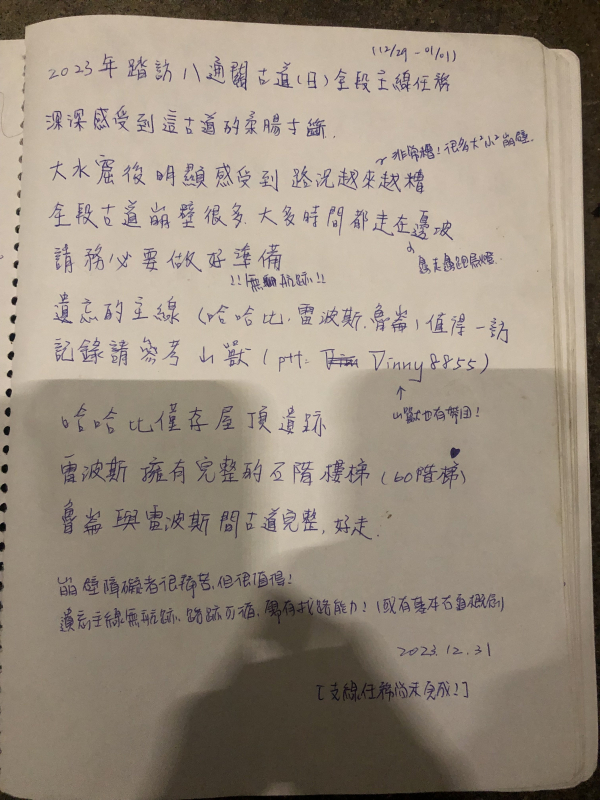 (12/29 - 01/01)
2023年 踏訪八通關古道(日)全段主線任務
深深感受到這古道的柔腸寸斷.
非常糟!很多大大小小崩壁.
大水窟後明顯感受到 路況越來越糟
全段古道崩壁很多.大多時間都走在邊坡
請務必要做好準備
!!無航跡!!
遺忘的主線(哈哈比.雷波斯.魯崙)值得一訪
記錄請參考山獸(ptt: Vinny8855)
↑
山獸也有帶团!
哈哈比僅存屋頂遺跡
雷波斯擁有完整的石階樓梯(60階梯)
魯崙與雷波斯間古道完整,好走.
崩壁障礙者很痛苦,但很值得!
遺忘主線無航跡、路跡可循.需有找路能力!(或有基本古道概念)
2023.12.31
[支線任務尚未完成!]